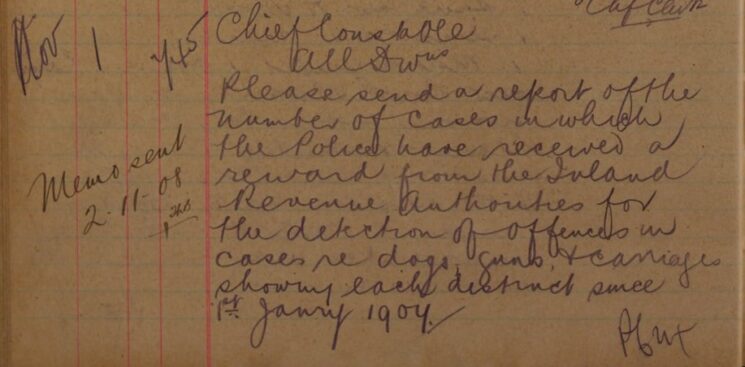 Chf Clerk
Nov 1 745 Chief Constable
All Dwns
Please send a report of the
number of cases in which
the Police have received a
reward from the Inland
Revenue Authorities for
the detection of offences in
cases re dogs, guns, & carriages
showing each district since
1st Janry 1907.
Memo sent
2-11-08